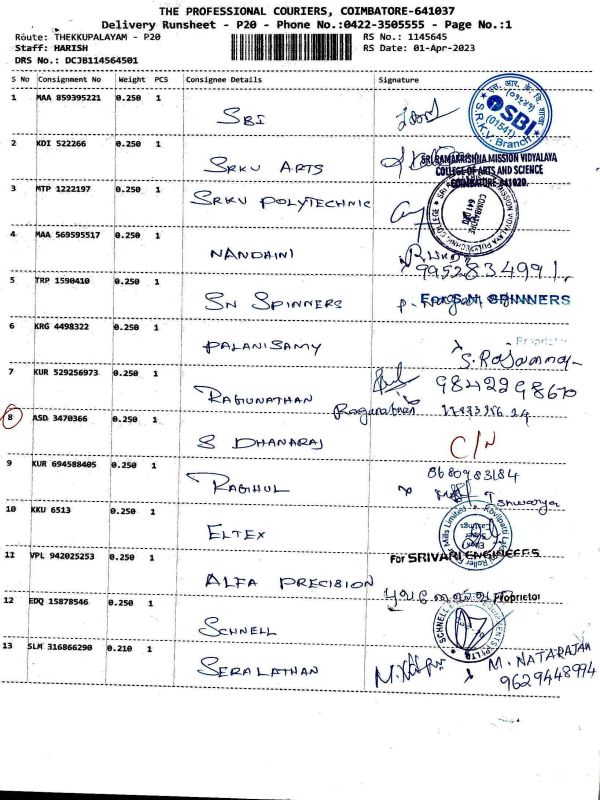 THE PROFESSIONAL COURIERS, COIMBATORE-641037
Delivery Runsheet - P20 - Phone No.:0422-3505555 - Page No.:1
Route: THEKKUPALAYAM - P20 RS No.: 1145645
Staff: HARISH RS Date: 01-Apr-2023
DRS No.: DCJB114564501
S No Consignment No Weight PCS Consignee Details Signature
1 MAA 859395221 0.250 1
SBI
SBI
(01541)
S.R.K.V. Branch
2 KDI 522266 0.250 1
SRKV ARTS
SRI RAMAKRISHNA MISSION VIDYALAYA
COLLEGE OF ARTS AND SCIENCE
COIMBATORE-641020.
3 MTP 1222197 0.250 1
SRKV POLYTECHNIC
COIMBATORE
641 020
4 MAA 569595517 0.250 1
NANDHINI
9952834991
5 TRP 1590410 0.250 1
SN SPINNERS
For S.N. SPINNERS
6 KRG 4498322 0.250 1
Proprietor
PALANISAMY
S. Rajammay
7 KUR 529256973 0.250 1
9842298670
RAGUNATHAN
Ragunathan
8 ASD 3470366 0.250 1
S DHANARAJ
C/N
9 KUR 694588405 0.250 1
8680983184
RAGHUL
Ishwarya
10 KKU 6513 0.250 1
ELTEX
11 VPL 942025253 0.250 1
For SRIVARI ENGINEERS
ALFA PRECISION
Proprietor
12 EDQ 15878546 0.250 1
SCHNELL
13 SLM 316866290 0.210 1
SERALATHAN
M. NATARAJAN
9629448994